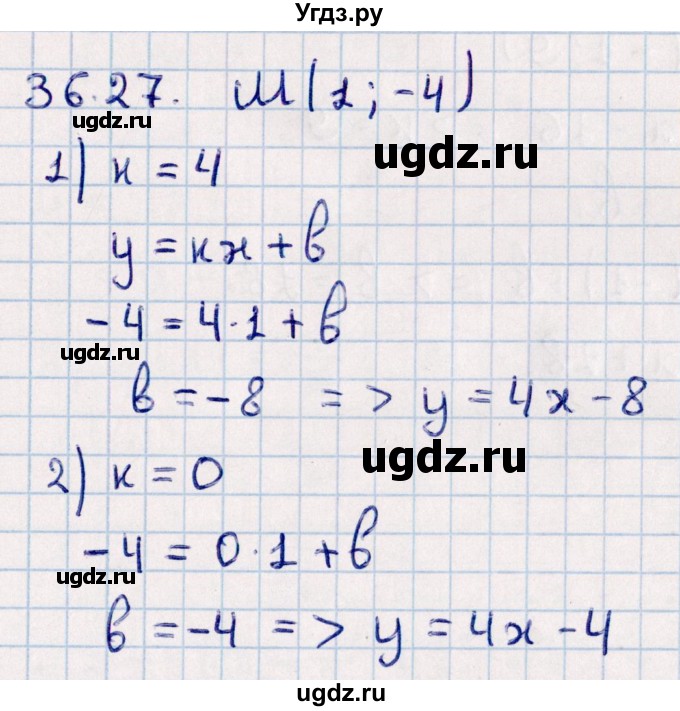 Угдз.ру
36.27. М(1; -4)
ugdz.ru
ugdz.ru
1) к = 4
y = кx + b
-4 = 4·1 + b
ugdz.ru
b = -8 => y = 4x - 8
2) к = 0
ugdz.ru
-4 = 0·1 + b
ugdz.ru
b = -4 => y = 4x - 4
ugdz.ru